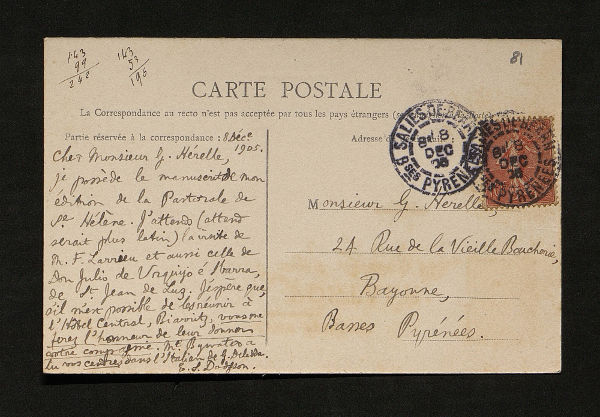 143
99
242
143
53
196
81
CARTE POSTALE
La Correspondance au recto n'est pas acceptée par tous les pays étrangers
Partie réservée à la correspondance :
8 Déc.e
1905.
Cher Monsieur G. Hérelle,
je possède le manuscrit de mon
édition de la Pastorale de
Ste Hélène. J'attend (attend
serait plus latin) la visite de
M. F. Larrieu et aussi celle de
Don Julio de Urquijo é Ibarra,
de St Jean de Luz. J'éspère que,
s'il m'est possible de les réunir à
l'Hôtel Central, Biarritz, vous me
ferez l'honneur de leur donner
votre compagnie. Mr Bywater a
lu vos dans l'Italien de G. Deledda.
E. S. Dodgson.
Adresse
SALIES-DE-BEARN
8 DEC 05
Bses PYRENEES
SALIES-DE-BEARN
8 DEC 05
PYRENEES
Monsieur G. Herelle,
24 Rue de la Vieille Boucherie,
Bayonne,
Basses Pyrénées.